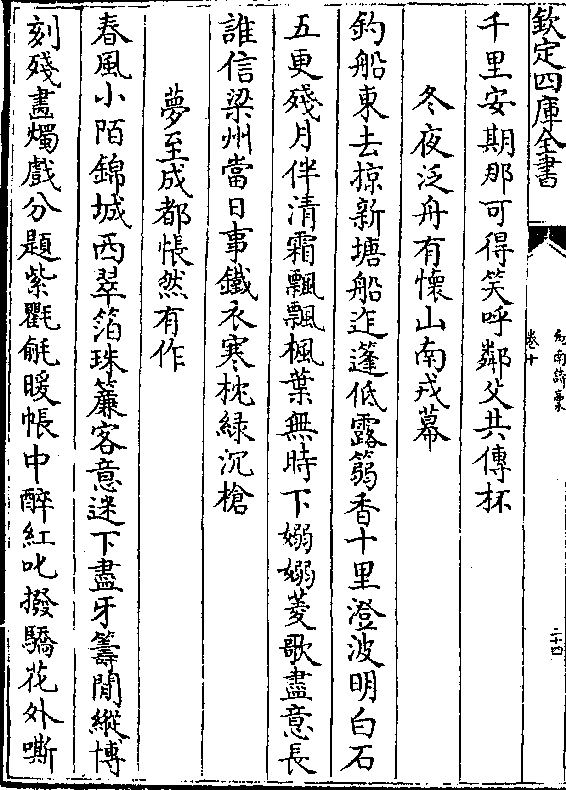 欽定四庫全書
劍南詩稾
卷十
二十四
千里安期那可得笑呼鄰父共傳杯
冬夜泛舟有懷山南戎幕
釣船東去掠新塘船迮篷低露篛香十里澄波明白石
五更殘月伴清霜飄飄楓葉無時下嫋嫋菱歌盡意長
誰信梁州當日事鐵衣寒枕綠沉槍
夢至成都悵然有作
春風小陌錦城西翠箔珠簾客意迷下盡牙籌閒縱博
刻殘畫燭戲分題紫氍毹暖帳中醉紅叱撥驕花外嘶